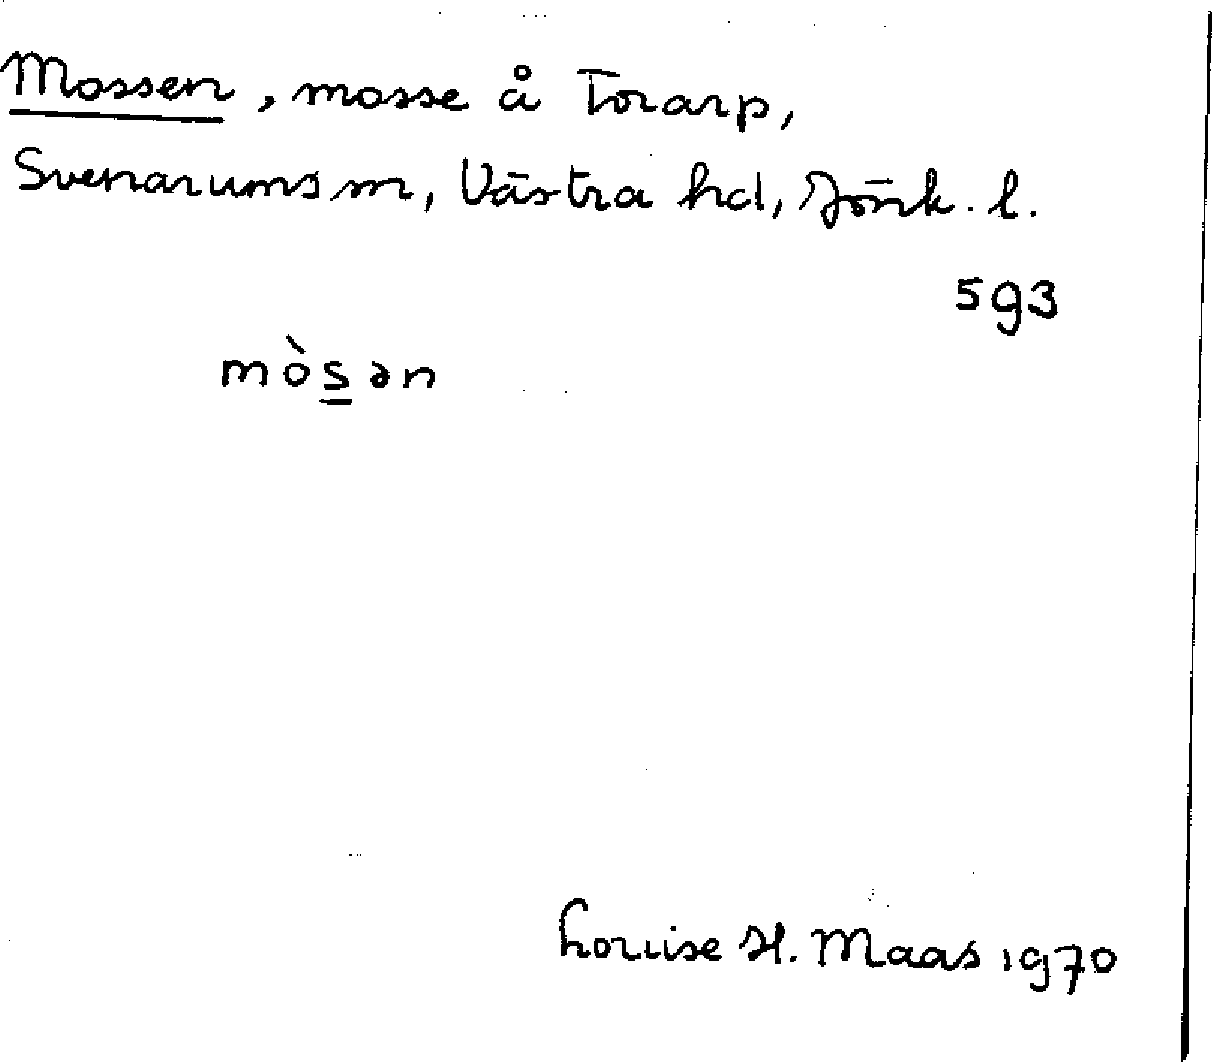 Mossen, mosse å Torarp,
Svenarums sn, Västra hd, Jönk. l.
593
mòs̲ən
Louise H. Maas 1970